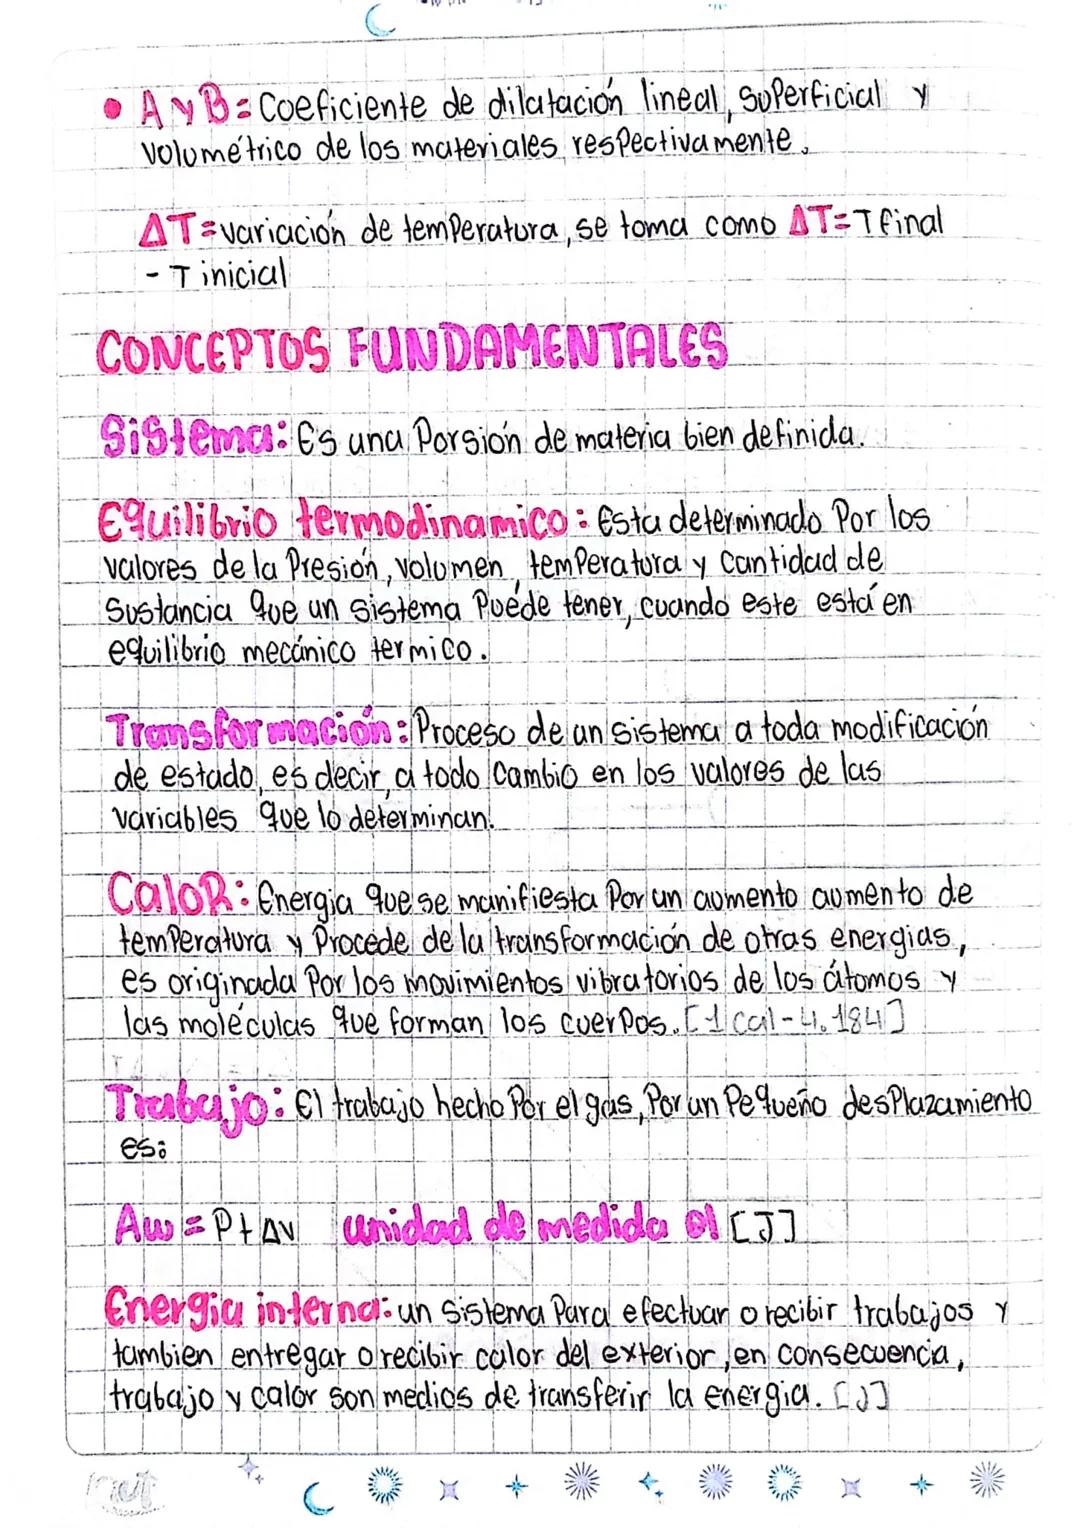 • A y B = Coeficiente de dilatación lineal, superficial y
volumétrico de los materiales respectivamente.
ΔT = variación de temperatura, se toma como ΔT = T final
- T inicial
CONCEPTOS FUNDAMENTALES
Sistema: Es una Porsión de materia bien definida.
Equilibrio termodinamico: Esta determinado Por los
valores de la Presión, volumen, temperatura y Cantidad de
Sustancia que un sistema Puede tener, cuando este está en
equilibrio mecánico termico.
Transformación: Proceso de un sistema a toda modificación
de estado, es decir, a todo Cambio en los valores de las
variables que lo determinan.
Calor: Energia que se manifiesta Por un aumento aumento de
temperatura y Procede de la transformación de otras energias,
es originada Por los movimientos vibratorios de los átomos y
las moléculas que forman los cuerpos. [1 cal - 4.184]
Trabajo: El trabajo hecho Por el gas, Por un Pequeño desplazamiento
es:
Aw = P + ΔV unidad de medida el [J]
Energia interna: un sistema Para efectuar o recibir trabajos y
tambien entregar o recibir calor del exterior, en consecuencia,
trabajo y calor son medios de transferir la energia. [J]